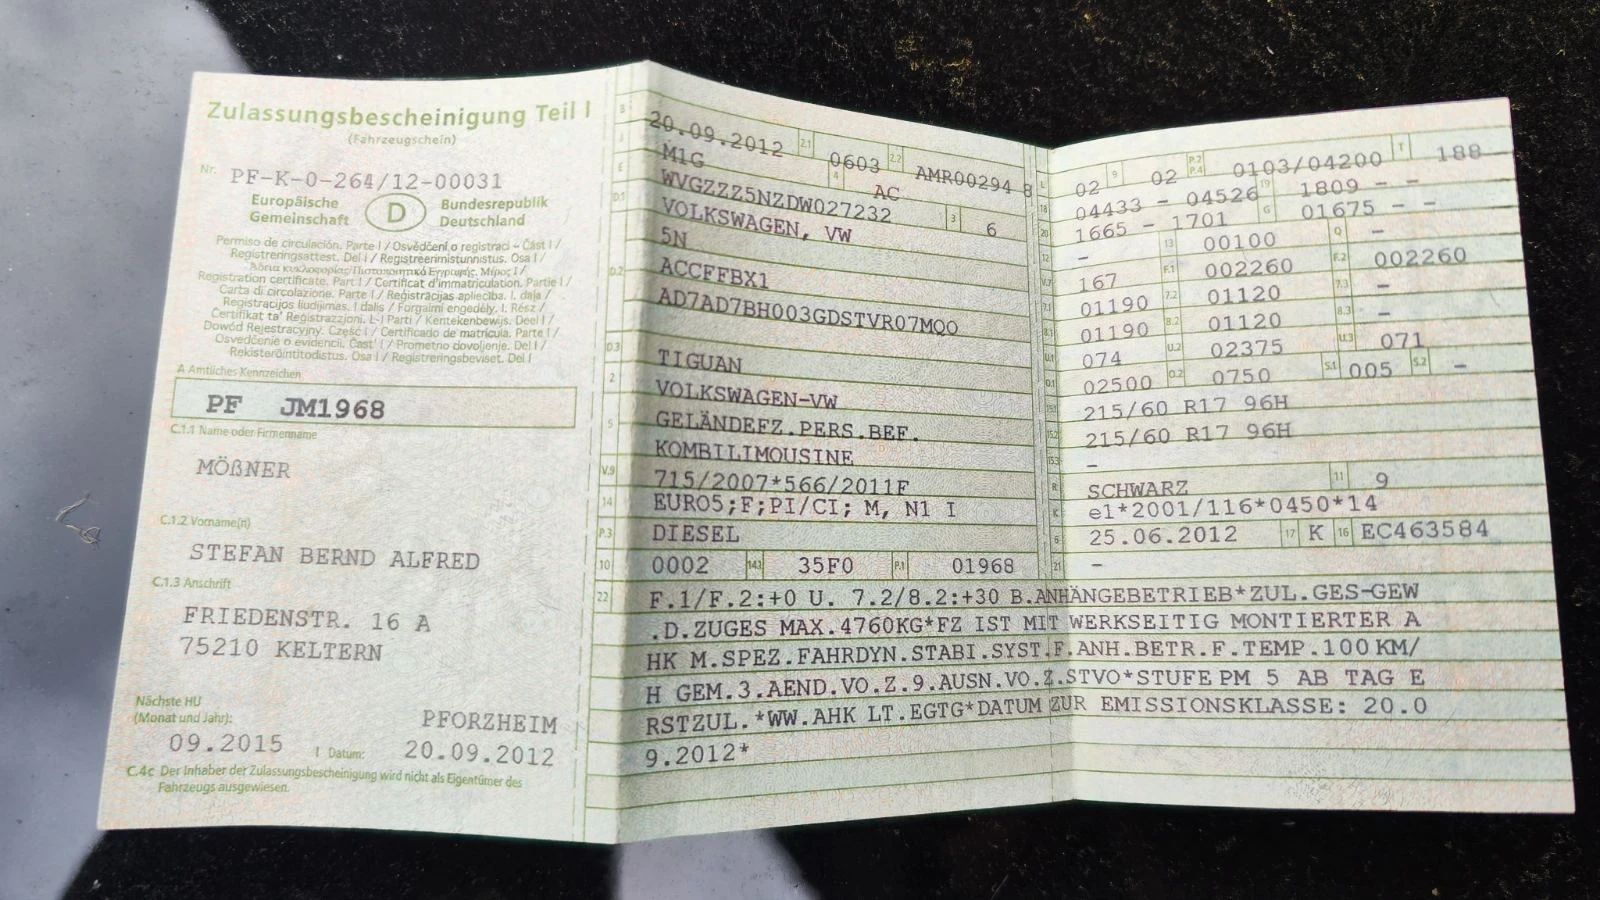 Zulassungsbescheinigung Teil I
(Fahrzeugschein)
Nr. PF-K-0-264/12-00031
Europäische Gemeinschaft
D
Bundesrepublik Deutschland
Permiso de circulación. Parte I / Osvědčení o registraci – Část I /
Registreringsattest. Del I / Registreerimistunnistus. Osa I /
Άδεια κυκλοφορίας/Πιστοποιητικό Εγγραφής. Μέρος I /
Registration certificate. Part I / Certificat d'immatriculation. Partie I /
Carta di circolazione. Parte I / Reģistrācijas apliecība. I. daļa /
Registracijos liudijimas. I dalis / Forgalmi engedély. I. Rész /
Ċertifikat ta' Reġistrazzjoni. L-I Parti / Kentekenbewijs. Deel I /
Dowód Rejestracyjny. Część I / Certificado de matrícula. Parte I /
Osvedčenie o evidencii. Časť I / Prometno dovoljenje. Del I /
Rekisteröintitodistus. Osa I / Registreringsbeviset. Del I
A Amtliches Kennzeichen
PF JM1968
C.1.1 Name oder Firmenname
MÖßNER
C.1.2 Vorname(n)
STEFAN BERND ALFRED
C.1.3 Anschrift
FRIEDENSTR. 16 A
75210 KELTERN
Nächste HU
(Monat und Jahr):
PFORZHEIM
09.2015 I Datum: 20.09.2012
C.4c Der Inhaber der Zulassungsbescheinigung wird nicht als Eigentümer des
Fahrzeugs ausgewiesen.
B 20.09.2012 2.1 0603 2.2 AMR00294 8
J M1G 4 AC
E WVGZZZ5NZDW027232 3 6
D.1 VOLKSWAGEN, VW
5N
D.2 ACCFFBX1
AD7AD7BH003GDSTVR07MQO
D.3 TIGUAN
2 VOLKSWAGEN-VW
5 GELÄNDEFZ.PERS.BEF.
KOMBILIMOUSINE
V.9 715/2007*566/2011F
14 EURO5;F;PI/CI; M, N1 I
P.3 DIESEL
10 0002 14.1 35F0 P.1 01968
L 02 9 02 P.2 P.4 0103/04200 T 188
18 04433 - 04526 19 1809 - -
20 1665 - 1701 G 01675 - -
12 - 13 00100 Q -
V.7 167 F.1 002260 F.2 002260
7.1 01190 7.2 01120 7.3 -
8.1 01190 8.2 01120 8.3 -
U.1 074 U.2 02375 U.3 071
O.1 02500 O.2 0750 S.1 005 S.2 -
15.1 215/60 R17 96H
15.2 215/60 R17 96H
15.3 -
R SCHWARZ 11 9
K e1*2001/116*0450*14
6 25.06.2012 17 K 16 EC463584
21 -
22 F.1/F.2:+0 U. 7.2/8.2:+30 B.ANHÄNGEBETRIEB*ZUL.GES-GEW
.D.ZUGES MAX.4760KG*FZ IST MIT WERKSEITIG MONTIERTER A
HK M.SPEZ.FAHRDYN.STABI.SYST.F.ANH.BETR.F.TEMP.100KM/
H GEM.3.AEND.VO.Z.9.AUSN.VO.Z.STVO*STUFE PM 5 AB TAG E
RSTZUL.*WW.AHK LT.EGTG*DATUM ZUR EMISSIONSKLASSE: 20.0
9.2012*